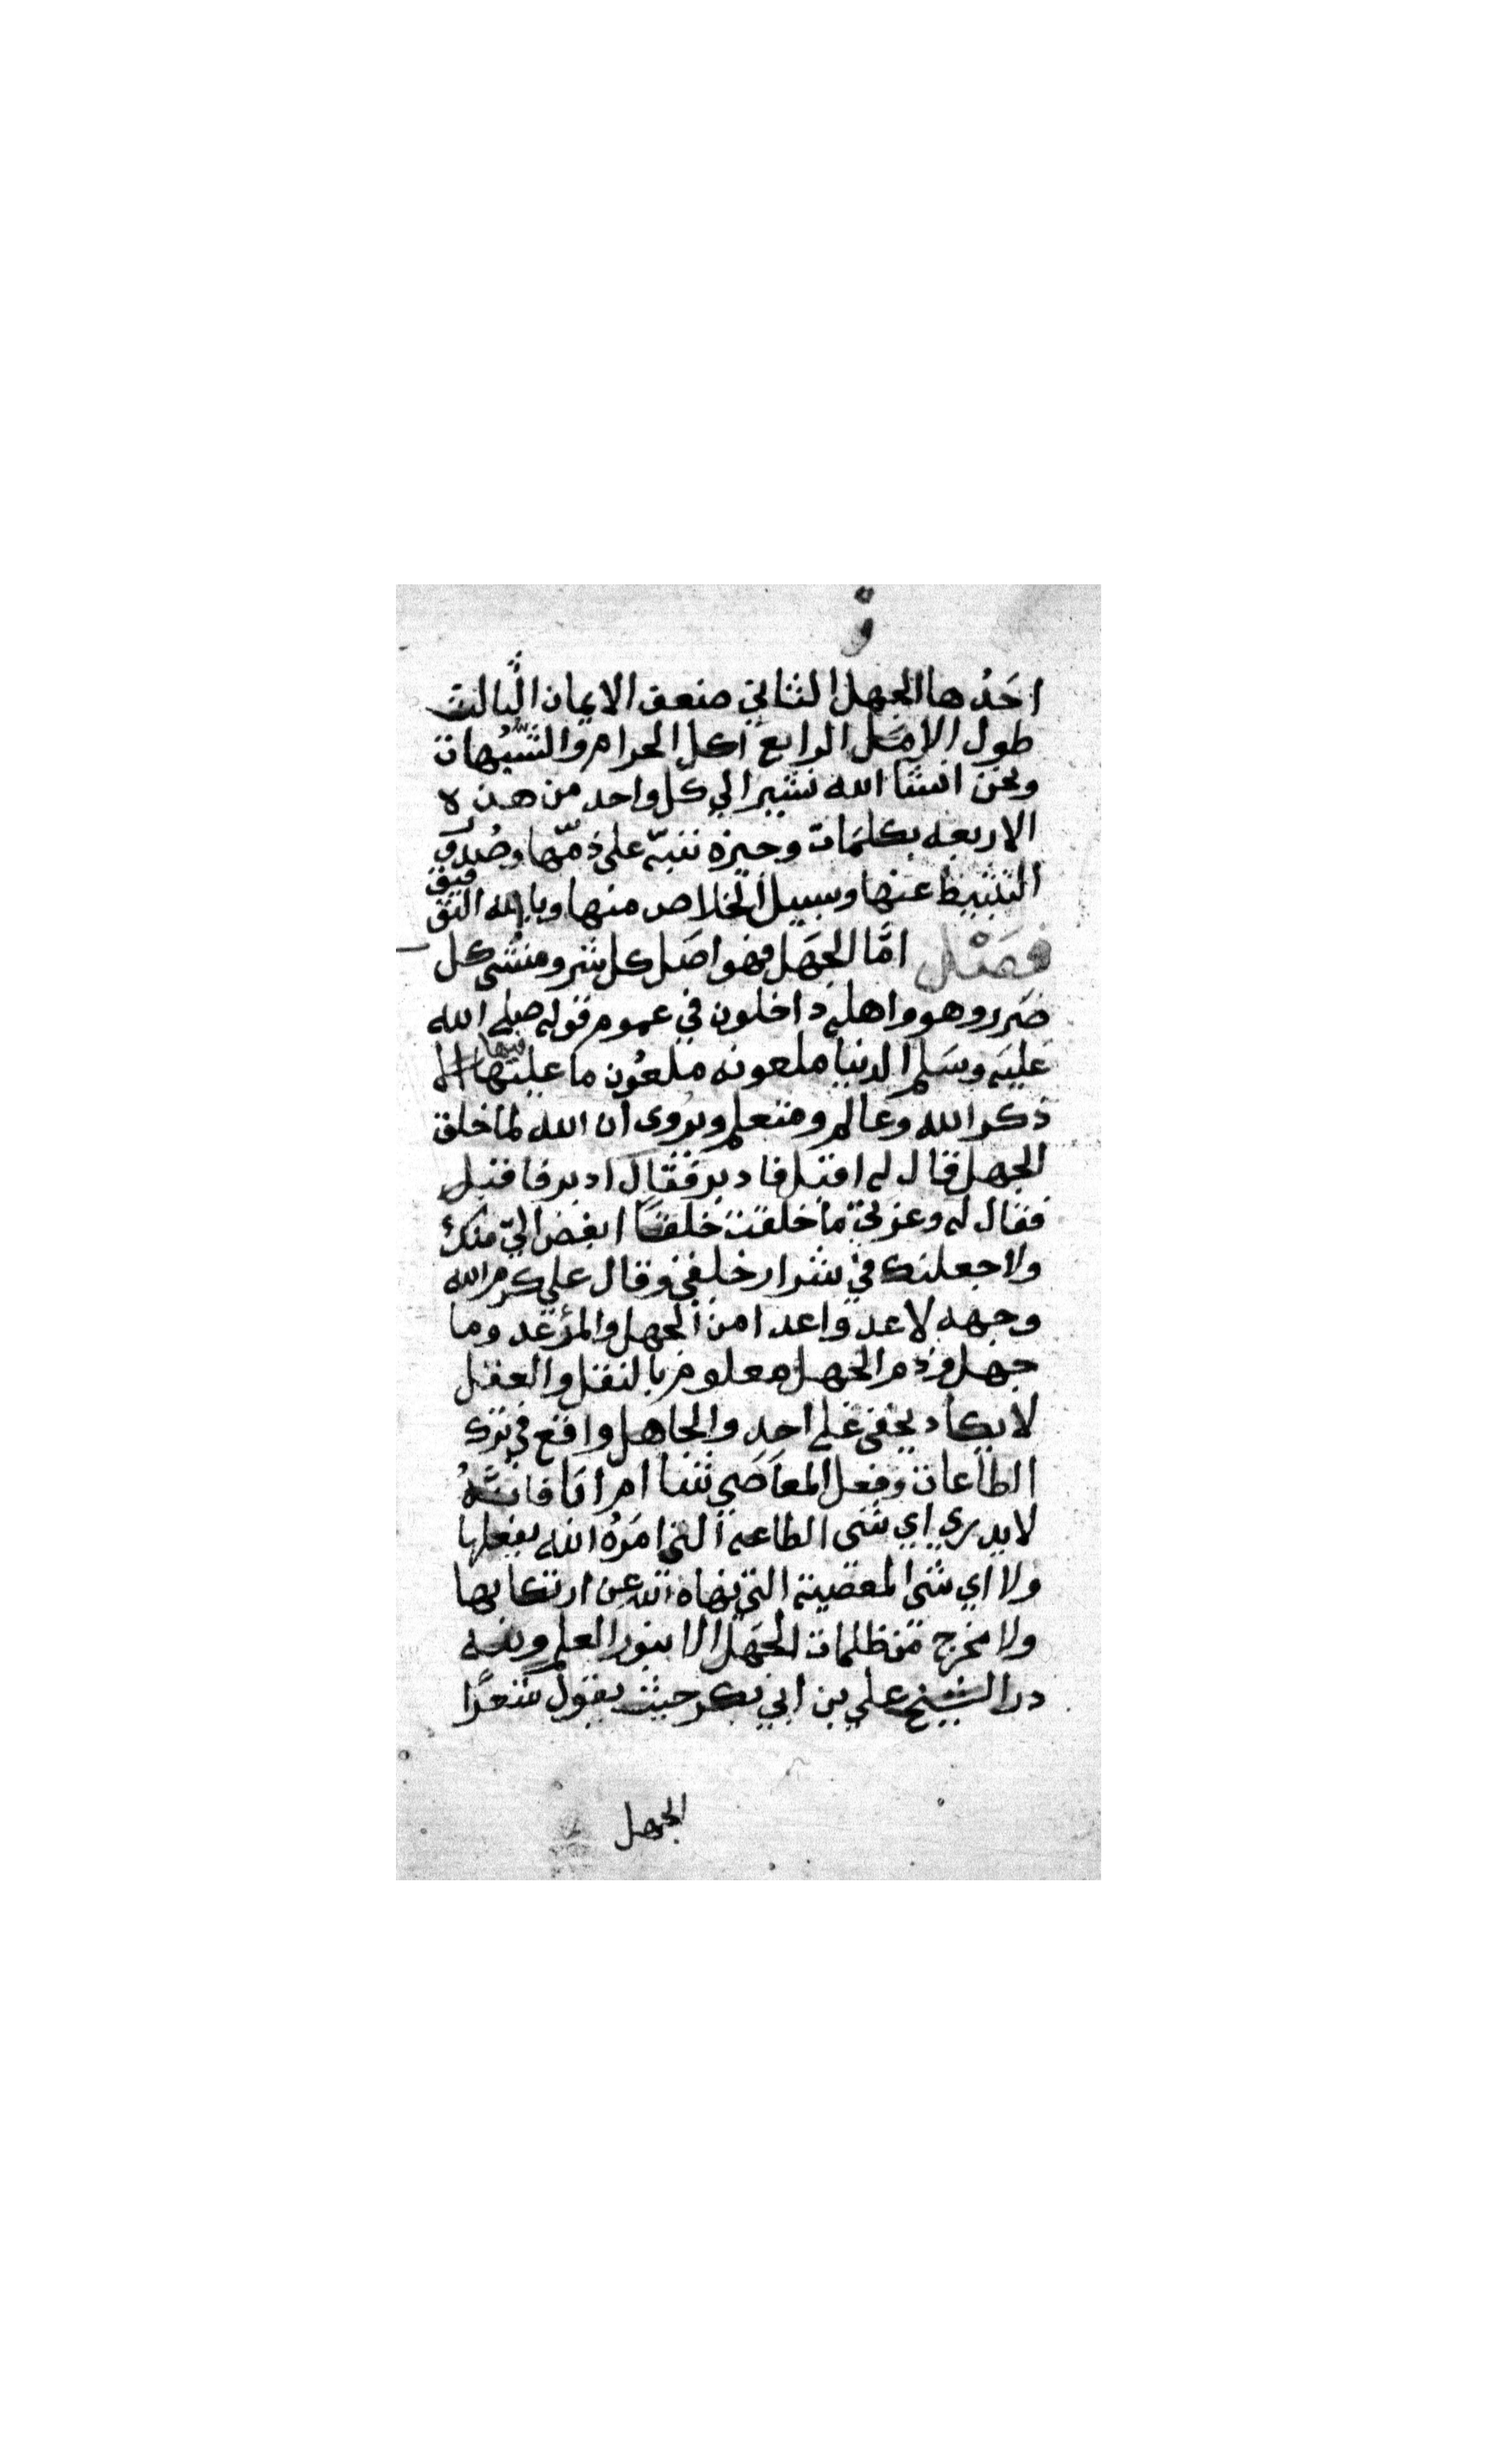 احَدُها الجهل الثاني ضعف الايمان الثالث
طول الامَل الرابع اكل الحرام والشُّبُهات
ونحن انشا الله نشير الي كل واحد من هذه
الاربعه بكلمَات وجيزه ننبّه علي ذمّها وصُدور
التثبيط عنها وسبيل الخلاص منها وبالله التوفيق
فصَل امَّا الجهَل فهو اصَل كل شر ومنشى كل
ضَرر وهو واهله داخلون في عموم قوله صلي الله
عليَه وسَلم الدنيا ملعونه ملعُون ما فيها الا
ذكر الله وعالم ومتعلم ويُروى ان الله لما خلق
الجهل قال له اقبل فادبر فقال ادبر فاقبل
فقال له وعزتي ما خلقت خلقًا ابغض اليّ منك
ولاجعلنك في شرار خلقي وقال علي كرم الله
وجهه لا عدو اعدا من الجهل والمرؤ عدو ما
جهل وذم الجهل معلوم بالنقل والعقل
لا يكاد يخفى علي احد والجاهل واقع في ترك
الطاعات وفعل المعاصَي شا ام ابَا فانَّهُ
لا يدري اي شى الطاعه التي امَرهُ الله بفعلها
ولا اي شى المعصية التي نهاه الله عن ارتكابها
ولا يخرج من ظلمات الجهَل الا بنور العلم ولله
در الشيخ علي بن ابي بكر حيث يقول شعرًا
الجهل